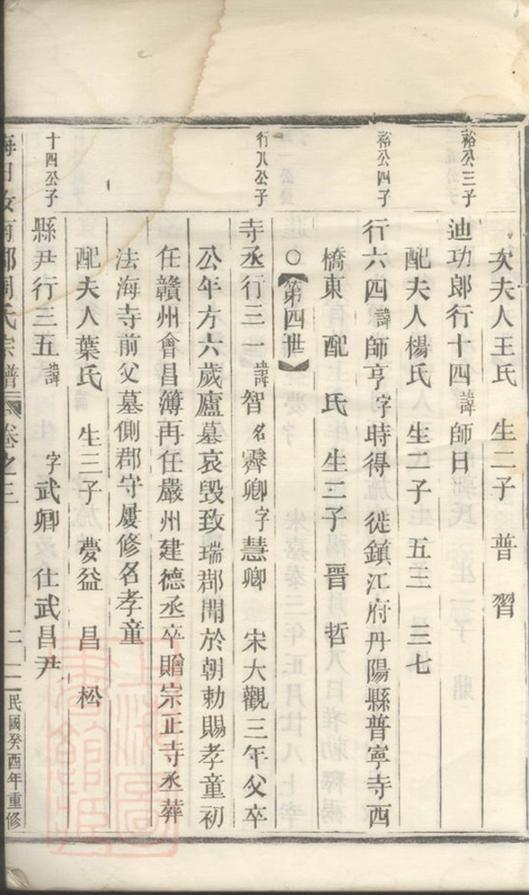 次夫人王氏　生二子　普　習
裕公三子
迪功郎行十四諱師日
配夫人楊氏　生二子　五三　三七
裕公四子
行六四諱師亨字時得　徙鎮江府丹陽縣普寧寺西
橋東　配　氏　生二子　晋　哲
○【第四世】
行八公子
寺丞行三一諱智名霽卿字慧卿　宋大觀三年父卒
公年方六歲廬墓哀毀致瑞郡聞於朝勅賜孝童初
任贛州會昌簿再任嚴州建德丞卒贈宗正寺丞葬
法海寺前父墓側郡守屢修名孝童
配夫人葉氏　生三子　夢益　昌　松
十四公子
縣尹行三五諱　字武卿　仕武昌尹
南　周氏宗譜　卷之三　二　民國癸酉年重修